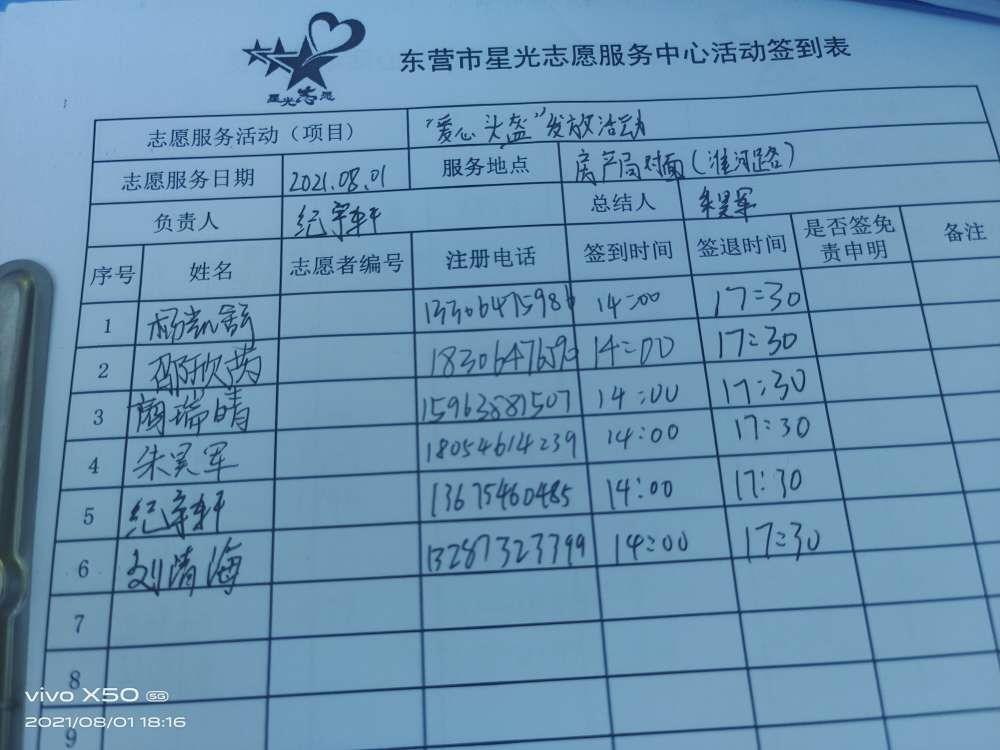 星光志愿
东营市星光志愿服务中心活动签到表
志愿服务活动（项目） “爱心头盔”发放活动
志愿服务日期 2021.08.01 服务地点 房产局对面（淮河路）
负责人 纪宇轩 总结人 朱昊军
序号 姓名 志愿者编号 注册电话 签到时间 签退时间 是否签免责申明 备注
1 杨凯舒 13306475986 14:00 17:30
2 邵欣茜 14:00 17:30
3 瑞晴 15963881507 14:00 17:30
4 朱昊军 18054614239 14:00 17:30
5 纪宇轩 13675460485 14:00 17:30
6 刘清海 13287323799 14:00 17:30
7
8
9
vivo X50 5G
2021/08/01 18:16